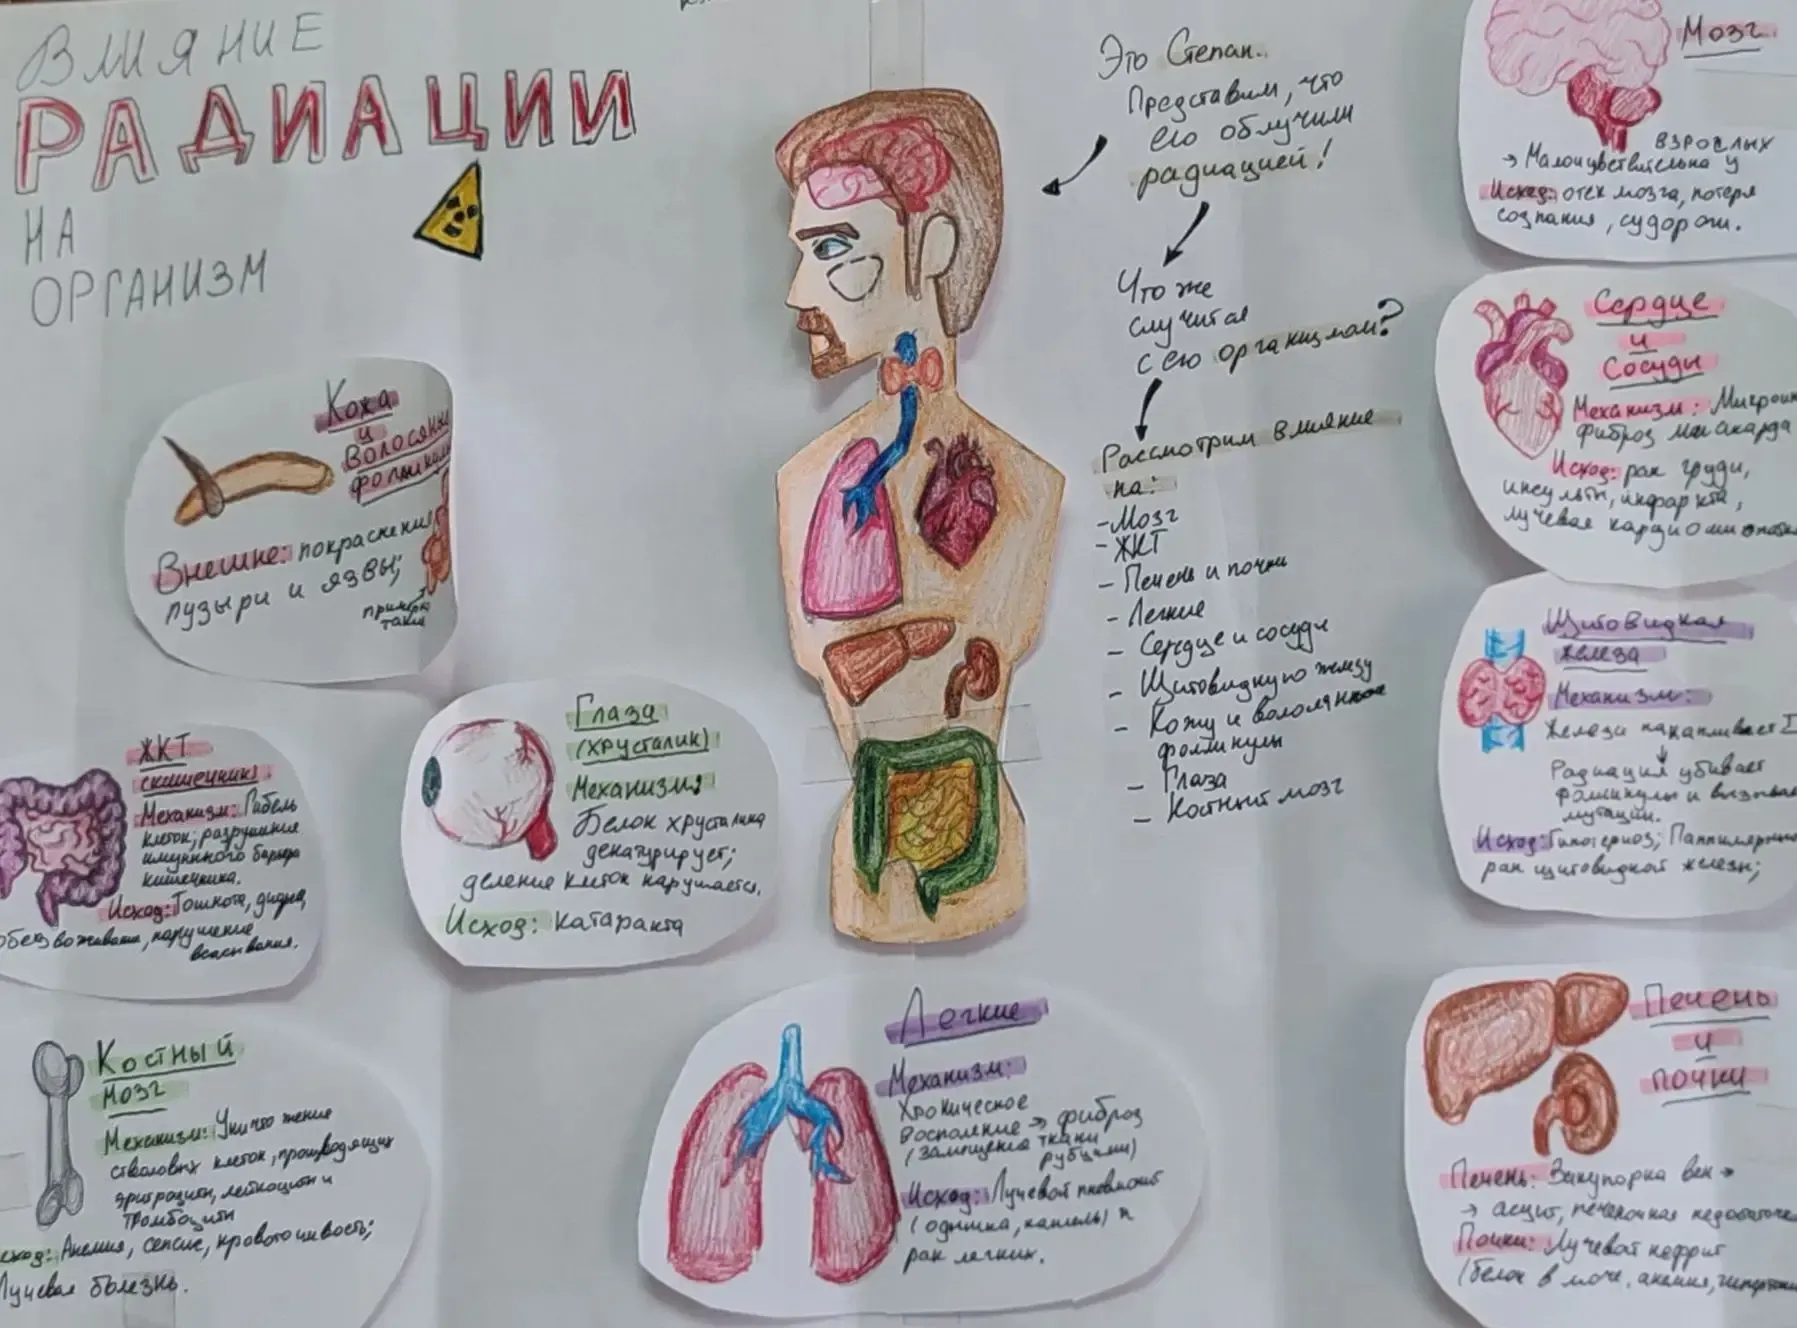 ВЛИЯНИЕ
РАДИАЦИИ
НА
ОРГАНИЗМ
Это Степан.
Представим, что
его облучили
радиацией!
Что же
случится
с его организмом?
Рассмотрим влияние
на:
- Мозг
- ЖКТ
- Печень и почки
- Легкие
- Сердце и сосуды
- Щитовидную железу
- Кожу и
фолликулы
- Глаза
- Костный мозг
Мозг
взрослых
→ Малочувствительна у
Исход: отек мозга, потеря
сознания, судороги.
Сердце
и
Сосуды
Механизм:
фиброз миокарда
Исход: рак груди,
инсульты, инфаркта,
лучевая
Щитовидная
железа
Механизм:
Железа накапливает I
↓
Радиация убивает
фолликулы и
мутации.
Исход: Гипотериоз;
рак щитовидной железы;
Печень
и
почки
Печень: Закупорка вен →
→ асцит, печеночная
Почки: Лучевой нефрит
(белок в моче, анемия,
Кожа
и
Волосяные
Внешне: покраснения,
пузыри и язвы;
примерно
такие
Глаза
(хрусталик)
Механизмя
Белок хрусталика
денатурирует;
деление клеток нарушается.
Исход: катаракта
ЖКТ
Механизм: Гибель
клеток; разрушение
имуннного барьера
кишечника.
Исход: Тошнота, диарея,
обезвоживание, нарушение
всасывания.
Костный
мозг
Механизм: Уничтожение
стволовых клеток, производящих
эритроциты, лейкоциты и
тромбоциты
Анемия, сепсис, кровоточивость;
Лучевая болезнь.
Легкие
Механизм:
Хроническое
Восполение → фиброз
(замещение ткани
рубцами)
Исход: Лучевой пневмонит
(одышка, кашель) и
рак легких.